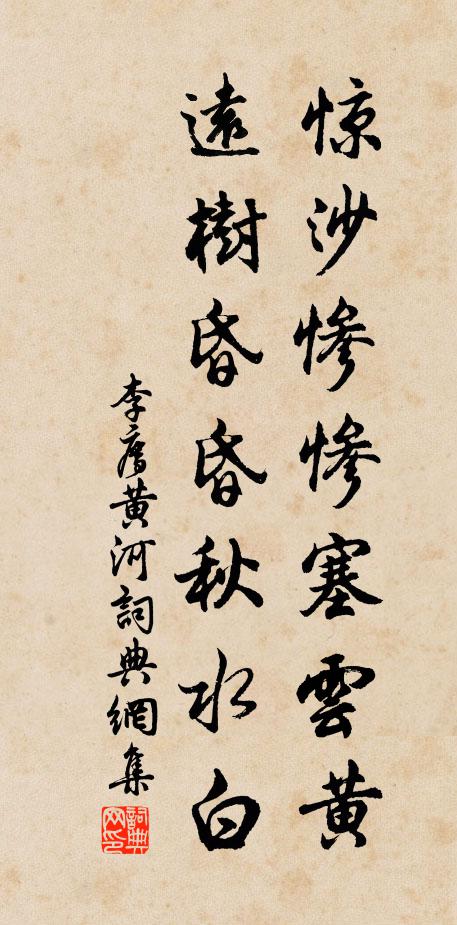 惊沙惨惨塞雲黄
遠樹昏昏秋水白
李黄河詞典網集
詞典
网印